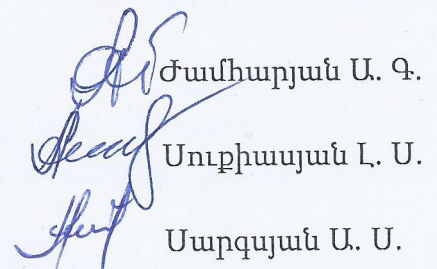 Ժամհարյան Ա. Գ.
Սուքիասյան Լ. Ս.
Սարգսյան Ա. Ս.